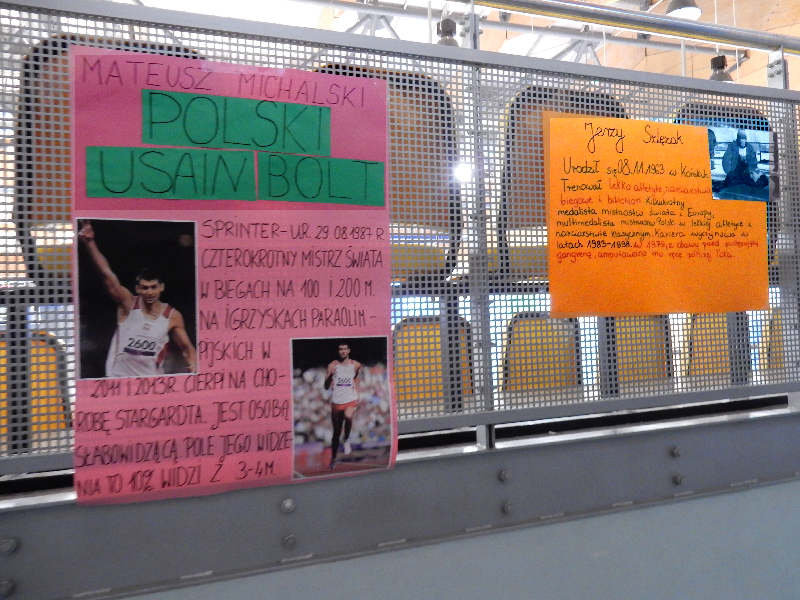 MATEUSZ MICHALSKI
POLSKI
USAIN BOLT
SPRINTER-UR. 29.08.1987 R
CZTEROKROTNY MISTRZ ŚWIATA
W BIEGACH NA 100 I 200 M.
NA IGRZYSKACH PARAOLIM-
PIJSKICH W
2011 I 2013R. CIERPI NA CHO-
ROBĘ STARGARDTA. JEST OSOBĄ
SŁABOWIDZĄCĄ. POLE JEGO WIDZE
NIA TO 10% WIDZI Z 3-4M
2600
2600
Jerzy
Urodził się 08.11.1963 w
Trenował lekką atletykę, narciarstwo
biegowe i biathlon. Kilkukrotny
medalista mistrzostw świata i Europy,
multimedalista mistrzostw Polski w lekkiej atletyce i
narciarstwie klasycznym. Kariera wyczynowa w
latach 1983-1998. w 1979, z obawy przed
gangreną, amputowano mu ręce